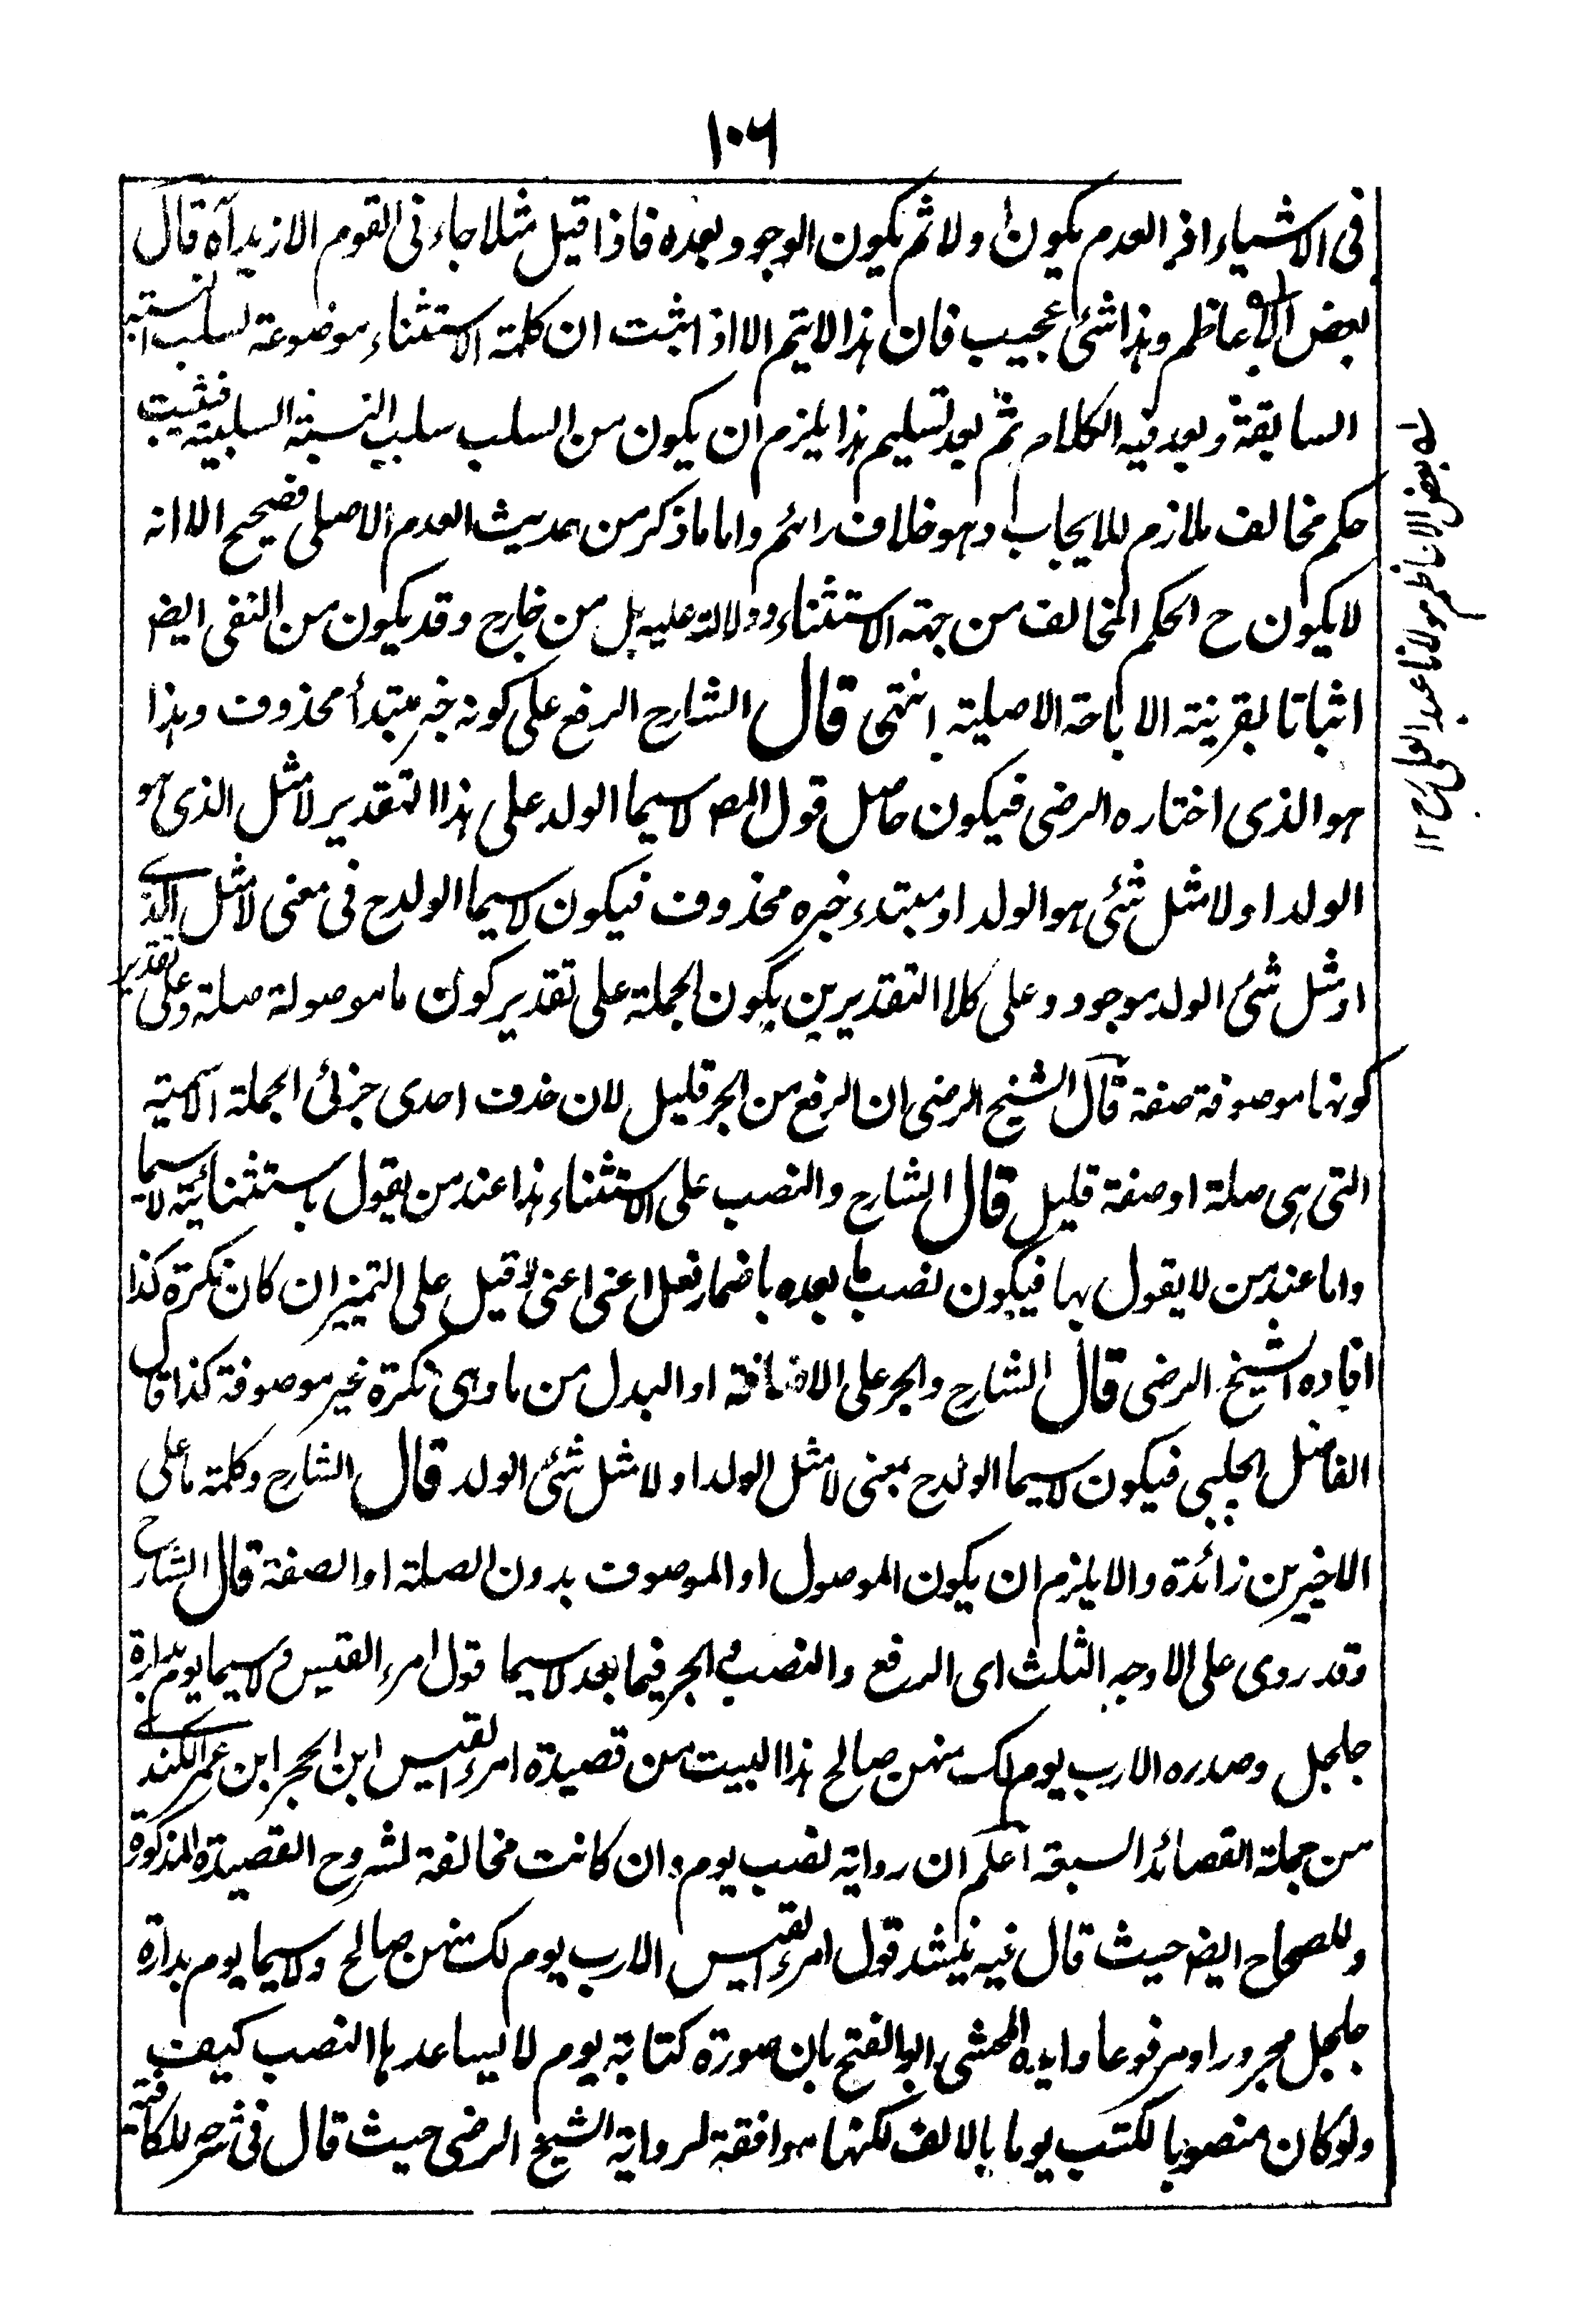 ١٠٦
فى الاشياء اذ العدم يكون اولا ثم يكون الوجود بعده فاذا قيل مثلا جاءنى القوم الا زيدا آه قال
بعض الاعاظم وہذا شئ عجيب فان ہذا لا يتم الا اذا ثبت ان كلمة الاستثناء موضوعة لسلب النسبة
السابقة وبعد فيه الكلام ثم بعد تسليم ہذا يلزم ان يكون من السلب سلب النسبة السلبية فيثبت
حكم مخالف ملازم للايجاب وہو خلاف رائهم واما ما ذكر من حديث العدم الاصلى فصحيح الا انه
لا يكون ح الحكم المخالف من جهة الاستثناء ودلالته عليه بل من خارج وقد يكون من النفى ايضا
اثباتا بقرينة الاباحة الاصلية انتهى قال الشارح الرفع على كونه خبر مبتدأ محذوف وہذا
ہو الذى اختاره الرضى فيكون حاصل قول المصـ لاسيما الولد على ہذا التقدير لا مثل الذى ہو
الولد او لا مثل شئ ہو الولد او مبتدء خبره محذوف فيكون لاسيما الولد ح فى معنى لا مثل الذى
او مثل شئ الولد موجود وعلى كلا التقديرين يكون الجملة على تقدير كون ما موصولة صلة وعلى تقدير
كونها موصوفة صفة قال الشيخ الرضى ان الرفع من الجر قليل لان حذف احدى جزئى الجملة الاسمية
التى ہى صلة او صفة قليل قال الشارح والنصب على الاستثناء ہذا عند من يقول باستثنائية لاسيما
واما عند من لا يقول بها فيكون نصب ما بعده باضمار فعل اعنى اعنى وقيل على التميز ان كان نكرة كذا
افاده الشيخ الرضى قال الشارح والجر على الاضافة او البدل من ما وہى نكرة غير موصوفة كذا قال
الفاضل الچلپى فيكون لاسيما الولد ح بمعنى لا مثل الولد او لا مثل شئ الولد قال الشارح وكلمة ما على
الاخيرين زائدة والا يلزم ان يكون الموصول او الموصوف بدون الصلة او الصفة قال الشارح
وقد روى على الاوجه الثلث اى الرفع والنصب والجر فيما بعد لاسيما قول امرء القيس ع ولاسيما يوم بدارة
جلجل وصدره الا رب يوم لك منهن صالح ہذا البيت من قصيدة امرء القيس ابن الحجر ابن عمر الكندى
من جملة القصائد السبعة اعلم ان رواية نصب يوم وان كانت مخالفة لشروح القصيدة المذكورة
وللصحاح ايضا حيث قال فيه ينشد قول امرء القيس الا رب يوم لك منهن صالح ولاسيما يوم بدارة
جلجل مجرورا ومرفوعا وايده المحشى ابو الفتح بان صورة كتابة يوم لا يساعد ہا النصب كيف
ولو كان منصوبا لكتب يوما بالالف لكنها موافقة لرواية الشيخ الرضى حيث قال فى شرحه للكافية
له بعض الاعاظم مولانا عبد العلى رح ١٢